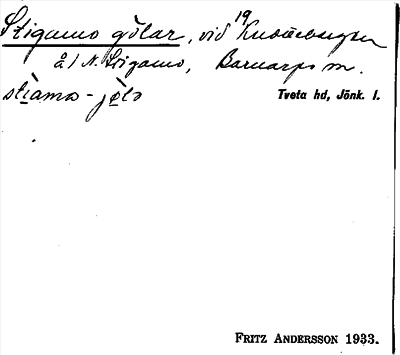 Stigamo gölar, vid 19 Knutteberget
å/ N. Stigamo, Barnarps sn.
stìamo - jö̀lə
Tveta hd, Jönk. l.
FRITZ ANDERSSON 1933.